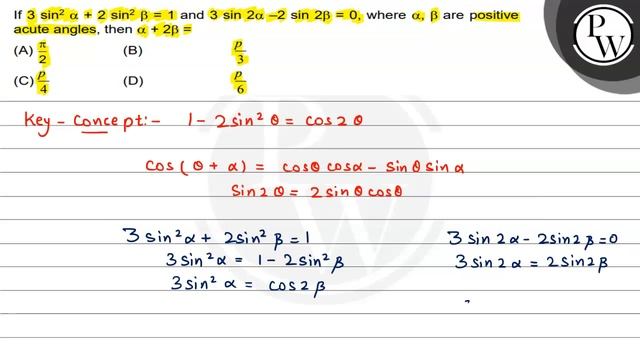 If 3 sin² α + 2 sin² β = 1 and 3 sin 2α −2 sin 2β = 0, where α, β are positive
acute angles, then α + 2β =
(A) π/2 (B) p/3
(C) p/4 (D) p/6
PW
Key - Concept:- 1 - 2 sin² θ = cos 2 θ
cos ( θ + α ) = cosθ cosα - sinθ sinα
Sin 2 θ = 2 sinθ cosθ
3 sin² α + 2 sin² β = 1
3 sin² α = 1 - 2 sin² β
3 sin² α = cos 2 β
3 sin 2α - 2 sin 2β = 0
3 sin 2α = 2 sin 2β